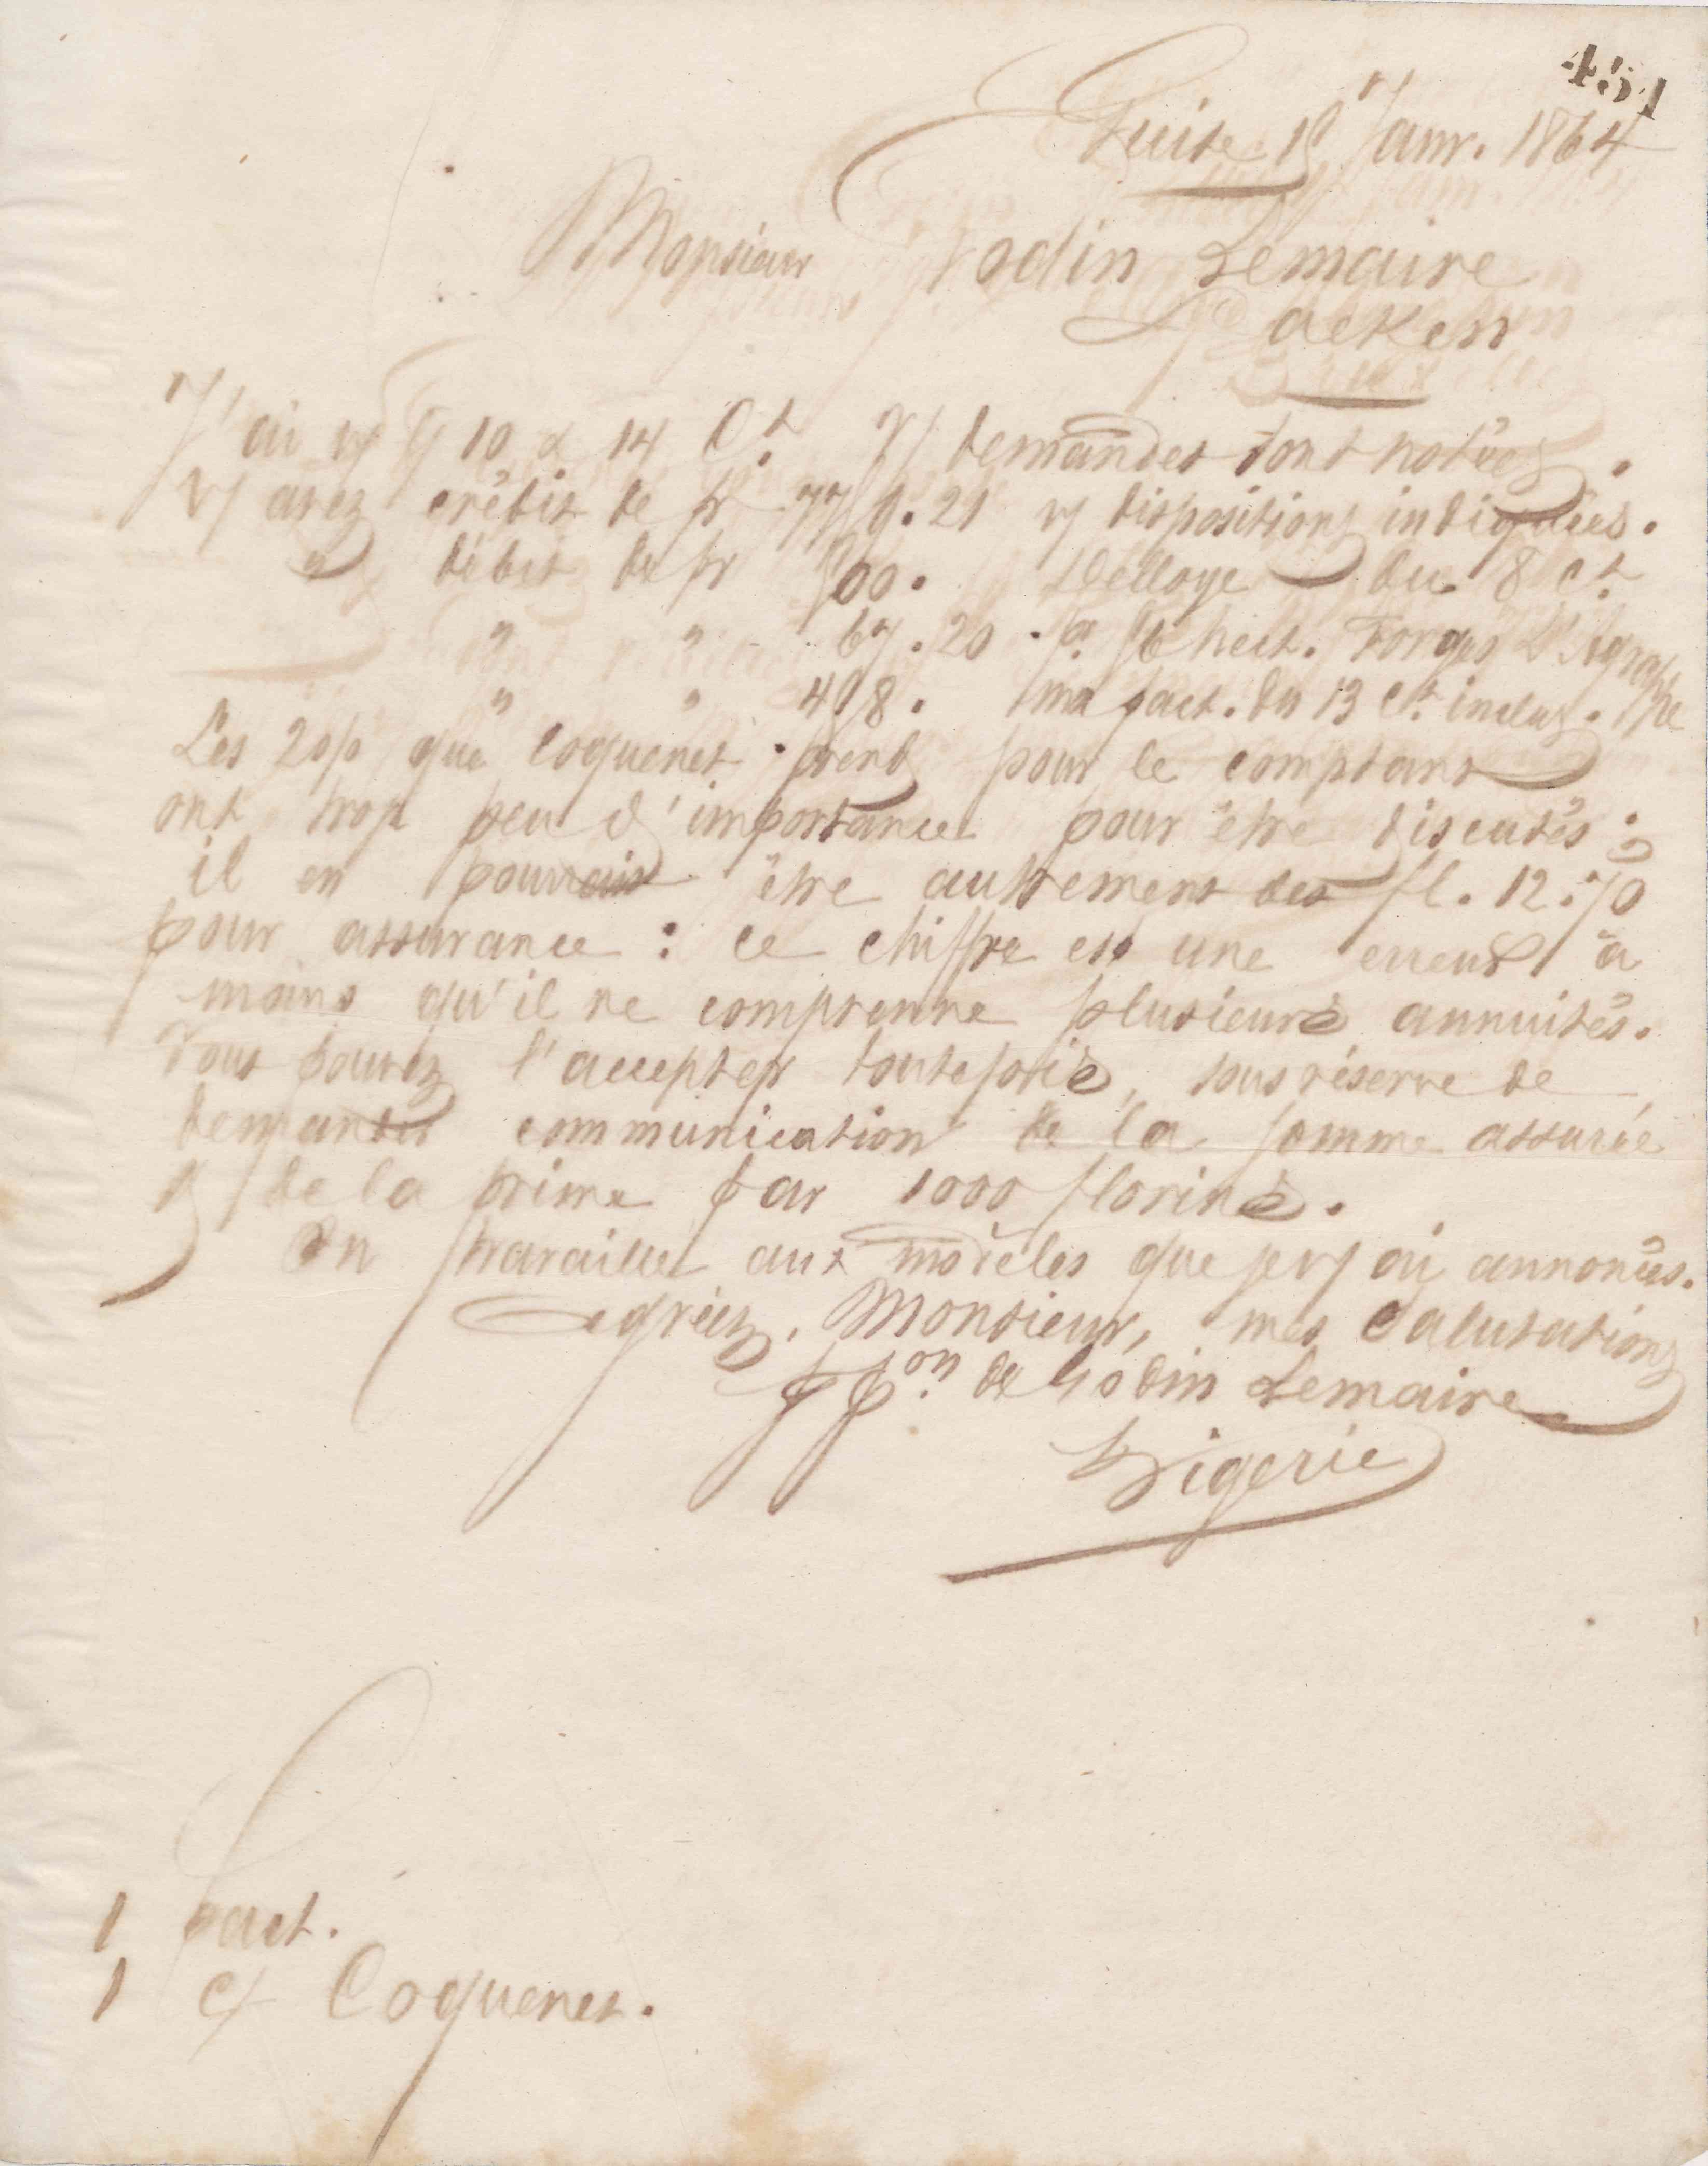 451
Guise 15 Janv. 1864
Monsieur Godin Lemaire
Laeken
J'ai v/ 10 & 14 Ct. V/ demandes sont notées.
V/ avez crédit de fr 21 v/ dispositions indiquées.
" débit de fr 500. Delloye du 8 Ct
" " 67.20. p. 16 hect. Forges
" " 498. ma fact. du 13 Ct. incluse.
Les 2 o/o que Coquenet prend pour le comptant
ont trop peu d'importance pour être discutés ;
il en pourrait être autrement des fl. 12.70
pour assurance : ce chiffre est une erreur à
moins qu'il ne comprenne plusieurs annuités.
Vous pouvez l'accepter toutefois, sous réserve de
demander communication de la somme assurée
& de la prime par 1000 florins.
On travaille aux modèles que je v/ ai annoncés.
Agréez, Monsieur, mes salutations
pp.on de Godin Lemaire
Rigerie
1 fact.
1 c/ Coquenet.